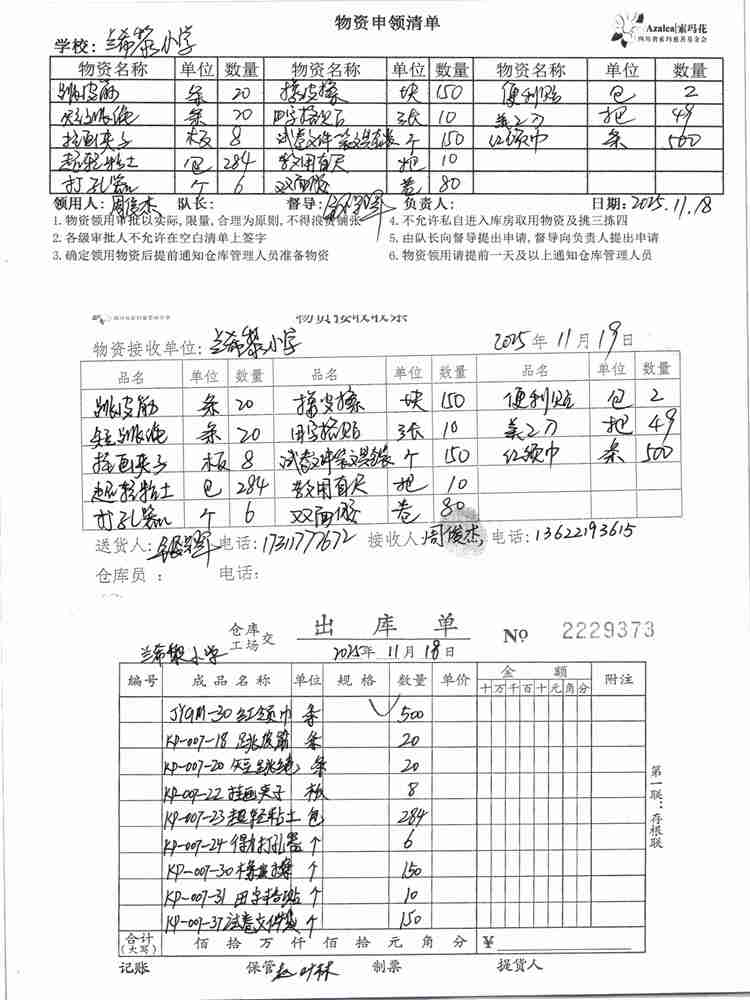 物资申领清单
Azalea 索玛花
四川省索玛慈善基金会
学校：兰希黎小学
物资名称 单位 数量 物资名称 单位 数量 物资名称 单位 数量
跳皮筋 条 20 擦皮擦 块 150 便利贴 包 2
短跳绳 条 20 田字格贴 张 10 美工刀 把 49
挂画夹子 板 8 试卷文件袋 个 150 红领巾 条 500
超轻粘土 包 284 教用直尺 把 10
打孔器 个 6 双面胶 卷 80
领用人：周俊杰 队长： 督导： 负责人： 日期：2025.11.18
1.物资领用审批以实际,限量,合理为原则,不得浪费铺张
4.不允许私自进入库房取用物资及挑三拣四
2.各级审批人不允许在空白清单上签字
5.由队长向督导提出申请,督导向负责人提出申请
3.确定领用物资后提前通知仓库管理人员准备物资
6.物资领用请提前一天及以上通知仓库管理人员
物资接收收条
物资接收单位：兰希黎小学 2025年11月19日
品名 单位 数量 品名 单位 数量 品名 单位 数量
跳皮筋 条 20 擦皮擦 块 150 便利贴 包 2
短跳绳 条 20 田字格贴 张 10 美工刀 把 49
挂画夹子 板 8 试卷文件袋 个 150 红领巾 条 500
超轻粘土 包 284 教用直尺 把 10
打孔器 个 6 双面胶 卷 80
送货人： 电话：17311777672 接收人：周俊杰 电话：13622193615
仓库员： 电话：
仓库 工场 交 出库单 No 2229373
兰希黎小学 2025年11月18日
编号 成品名称 单位 规格 数量 单价 金额 附注
十万千百十元角分
JYGM-30 红领巾 条 500
KP-007-18 跳皮筋 条 20
KP-007-20 短跳绳 条 20
KP-007-22 挂画夹子 板 8
KP-007-23 超轻粘土 包 284
KP-007-24 打孔器 个 6
KP-007-30 橡皮擦 个 150
KP-007-31 田字格贴 个 10
KP-007-37 试卷文件袋 个 150
第一联：存根联
合计(大写) 佰拾万仟佰拾元角分 ¥
记账 保管 赵叶林 制票 提货人